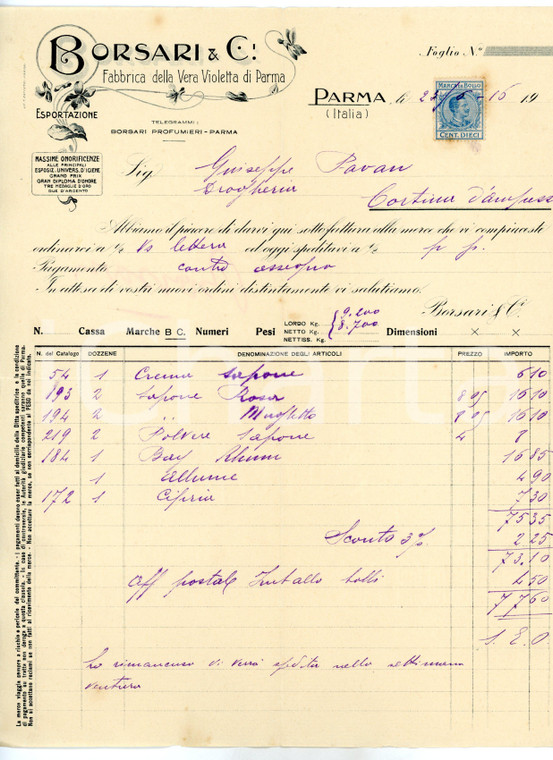 BORSARI & C.i
Fabbrica della Vera Violetta di Parma
Foglio N.o
ESPORTAZIONE
TELEGRAMMI:
BORSARI PROFUMIERI - PARMA
PARMA, li 19
(Italia)
MARCA DA BOLLO
CENT. DIECI
MASSIME ONORIFICENZE
ALLE PRINCIPALI
ESPOSIZ. UNIVERS. D'IGIENE
GRAND PRIX
GRAN DIPLOMA D'ONORE
TRE MEDAGLIE D'ORO
DUE D'ARGENTO
Sig. Guiseppe Pavan
Drogheria
Cortina d'Ampezzo
Abbiamo il piacere di darvi qui sotto fattura alla merce che vi compiaceste
ordinarci a 1/2 Vs lettera ed oggi speditavi a 1/2 p. p.
Pagamento contro assegno
In attesa di vostri nuovi ordini distintamente vi salutiamo.
Borsari & C.
N. Cassa Marche B C. Numeri Pesi LORDO Kg. 9.200 Dimensioni × ×
NETTO Kg. 8.700
NETTISS. Kg.
N. del Catalogo DOZZENE DENOMINAZIONE DEGLI ARTICOLI PREZZO IMPORTO
54 1 Crema Sapone 6 10
193 2 Sapone Rosa 8 05 16 10
194 2 " Mughetto 8 05 16 10
219 2 Polvere Sapone 4 8
184 1 Bay Rhum 16 85
1 Allume 4 90
172 1 Cipria 7 30
75 35
Sconto 3% 2 25
73.10
Aff postale Imballo bolli 4 50
77 60
S. E. O.
La rimanenza vi verrà spedita nella settimana
ventura
La merce viaggia sempre a rischio e pericolo del committente. - I pagamenti devono esser fatti al domicilio della Ditta speditrice e la condizione
di pagamento su tratte non deroga a questa clausola. - In caso di controversie, le Autorità giudiziarie competenti saranno quelle di Parma.
Non si accettano reclami se non fatti al ricevimento della merce. - Non accettare la merce, se non corrispondente al PESO da noi indicato.